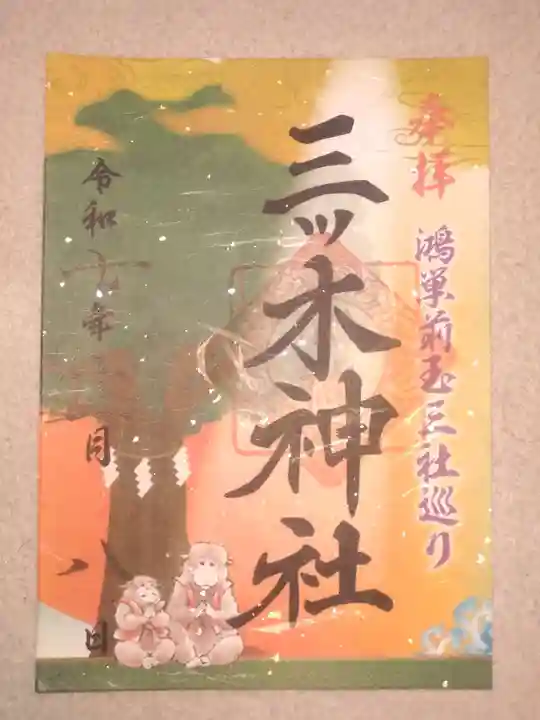 奉拝
鴻巣前玉三社巡り
三ッ木神社
令和七年 月八日